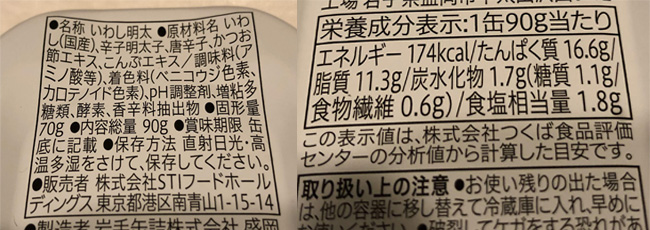 ●名称 いわし明太 ●原材料名 いわ
し(国産)、辛子明太子、唐辛子、かつお
節エキス、こんぶエキス/調味料(ア
ミノ酸等)、着色料(ベニコウジ色素、
カロテノイド色素)、pH調整剤、増粘多
糖類、酵素、香辛料抽出物 ●固形量
70g ●内容総量 90g ●賞味期限 缶
底に記載 ●保存方法 直射日光・高
温多湿をさけて、保存してください。
●販売者 株式会社STIフードホール
ディングス 東京都港区南青山1-15-14
●製造者 岩手缶詰株式会社 盛岡
栄養成分表示:1缶90g当たり
エネルギー 174kcal/たんぱく質 16.6g/
脂質 11.3g/炭水化物 1.7g(糖質 1.1g/
食物繊維 0.6g)/食塩相当量 1.8g
この表示値は、株式会社つくば食品評価
センターの分析値から計算した目安です。
取り扱い上の注意 ●お使い残りの出た場合
は、他の容器に移し替えて冷蔵庫に入れ、早めに
お使いください。●破裂してケガをする恐れがあ